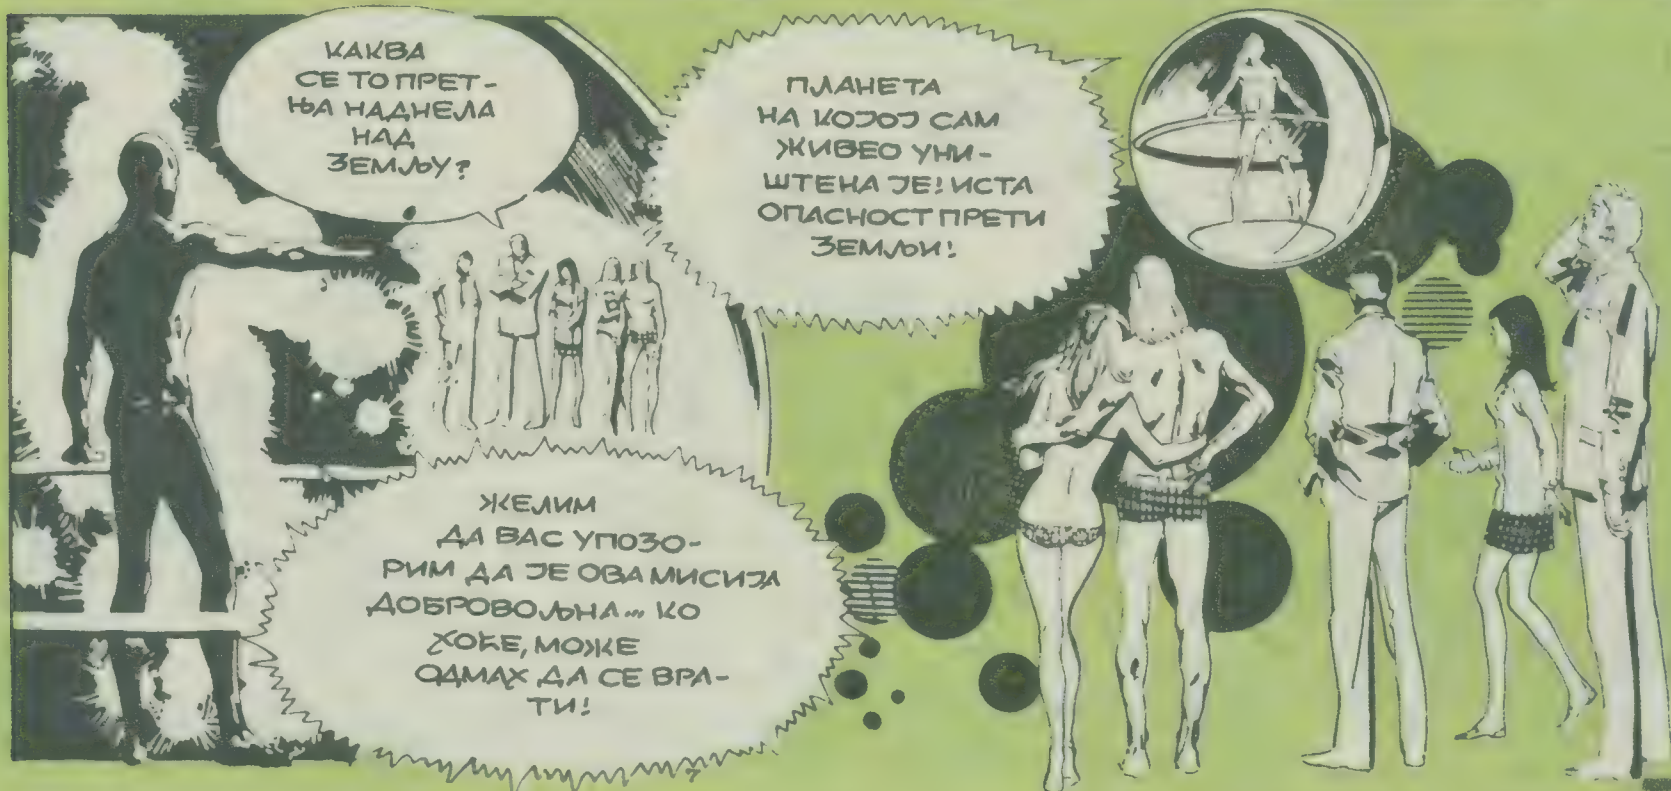 КАКВА
СЕ ТО ПРЕТ-
ЊА НАДНЕЛА
НАД
ЗЕМЉУ?
ПЛАНЕТА
НА КОЈОЈ САМ
ЖИВЕО УНИ-
ШТЕНА ЈЕ! ИСТА
ОПАСНОСТ ПРЕТИ
ЗЕМЉИ!
ЖЕЛИМ
ДА ВАС УПОЗО-
РИМ ДА ЈЕ ОВА МИСИЈА
ДОБРОВОЉНА... КО
ХОЋЕ, МОЖЕ
ОДМАХ ДА СЕ ВРА-
ТИ!